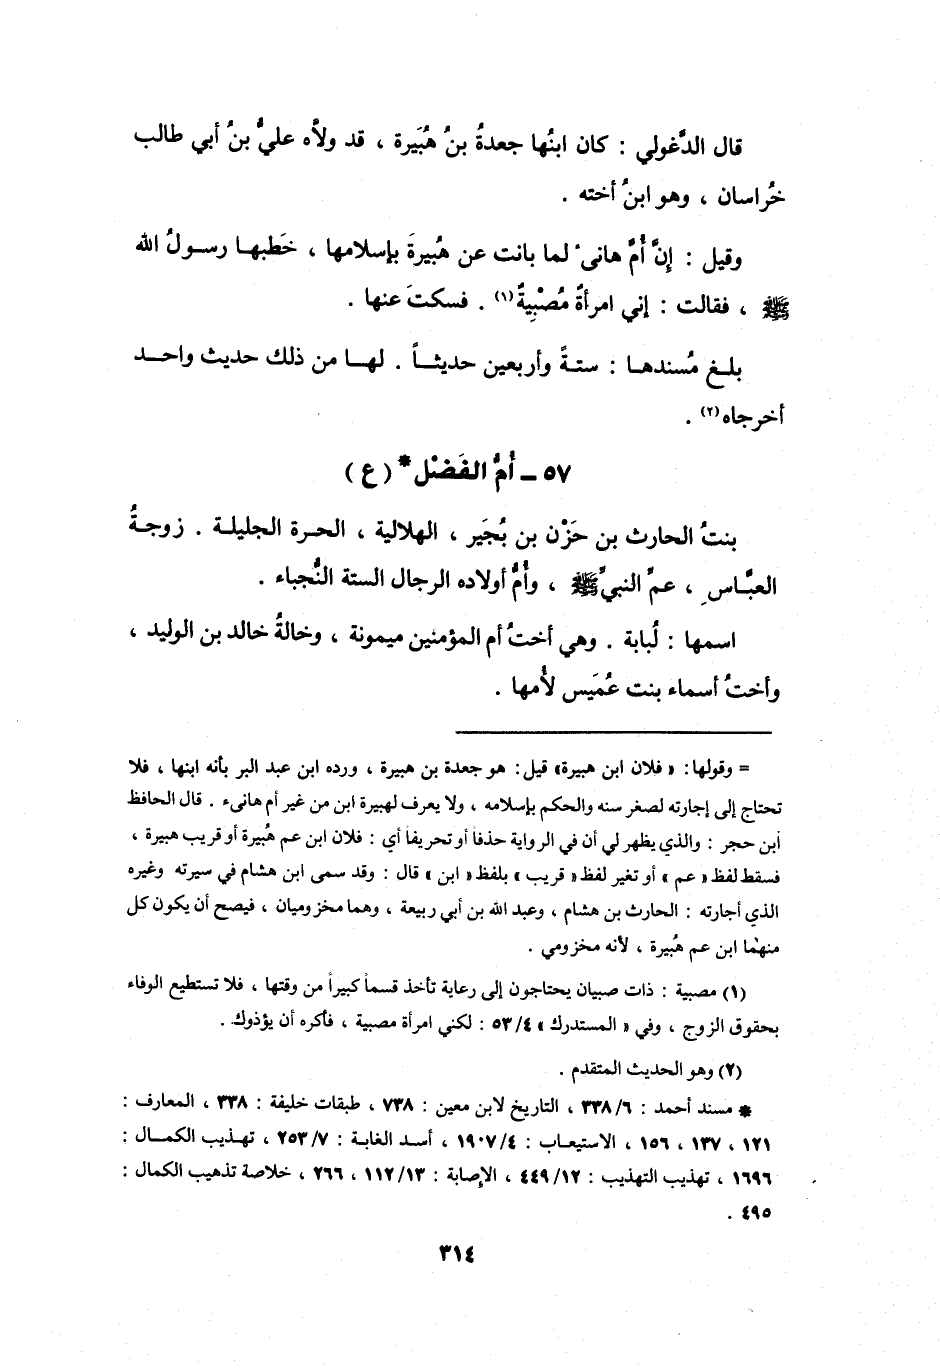 قال الدَّغولي : كان ابنُها جعدةُ بنُ هُبَيرة ، قد ولاَّه عليُّ بنُ أبي طالب
خُراسان ، وهو ابنُ أخته .
وقيل : إنَّ أُمَّ هانىء لما بانت عن هُبيرةَ بإسلامها ، خَطبها رسولُ الله
ﷺ ، فقالت : إني امرأةٌ مُصْبِيةٌ(١) . فسكتَ عنها .
بلغ مُسندها : ستةً وأربعين حديثاً . لها من ذلك حديث واحد
أخرجاه(٢) .
٥٧ ـ أُمُّ الفَضْل* (ع)
بنتُ الحارث بن حَزْن بن بُجَير ، الهلالية ، الحرة الجليلة . زوجةُ
العبَّاسِ ، عمِّ النبيِّ ﷺ ، وأُمُّ أولاده الرجال الستة النُّجباء .
اسمها : لُبابة . وهي أختُ أم المؤمنين ميمونة ، وخالةُ خالد بن الوليد ،
وأختُ أسماء بنت عُمَيس لأُمها .
= وقولها: « فلان ابن هبيرة» قيل: هو جعدة بن هبيرة ، ورده ابن عبد البر بأنه ابنها ، فلا
تحتاج إلى إجارته لصغر سنه والحكم بإسلامه ، ولا يعرف لهبيرة ابن من غير أم هانىء . قال الحافظ
ابن حجر : والذي يظهر لي أن في الرواية حذفاً أو تحريفاً أي : فلان ابن عم هُبيرة أو قريب هبيرة ،
فسقط لفظ « عم » أو تغير لفظ « قريب » بلفظ « ابن » قال : وقد سمى ابن هشام في سيرته وغيره
الذي أجارته : الحارث بن هشام ، وعبد الله بن أبي ربيعة ، وهما مخزوميان ، فيصح أن يكون كل
منهما ابن عم هُبيرة ، لأنه مخزومي .
(١) مصبية : ذات صبيان يحتاجون إلى رعاية تأخذ قسماً كبيراً من وقتها ، فلا تستطيع الوفاء
بحقوق الزوج ، وفي « المستدرك » ٥٣/٤ : لكني امرأة مصبية ، فأكره أن يؤذوك .
(٢) وهو الحديث المتقدم .
* مسند أحمد : ٣٣٨/٦ ، التاريخ لابن معين : ٧٣٨ ، طبقات خليفة : ٣٣٨ ، المعارف :
١٢١ ، ١٣٧ ، ١٥٦ ، الاستيعاب : ١٩٠٧/٤ ، أسد الغابة : ٢٥٣/٧ ، تهذيب الكمال :
١٦٩٦ ، تهذيب التهذيب : ٤٤٩/١٢ ، الإصابة : ١١٢/١٣ ، ٢٦٦ ، خلاصة تذهيب الكمال :
٤٩٥ .
٣١٤